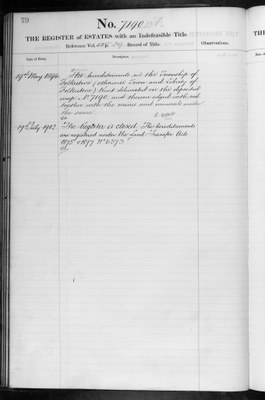 79
No. 7190
THE REGISTER of ESTATES with an Indefeasible Title
Reference Vol. Record of Title.
Observations.
Date of Entry.
Description
19th May 1896
The hereditaments in the Township of
Folkestone (otherwise Town and Liberty of
Folkestone) tinted on the deposited
map No. 7190 and thereon edged with red
together with the mines and minerals under
the same
19th July 1902
The Register is closed. The hereditaments
are registered under the Land Transfer Acts
1875 & 1897 No.
THE